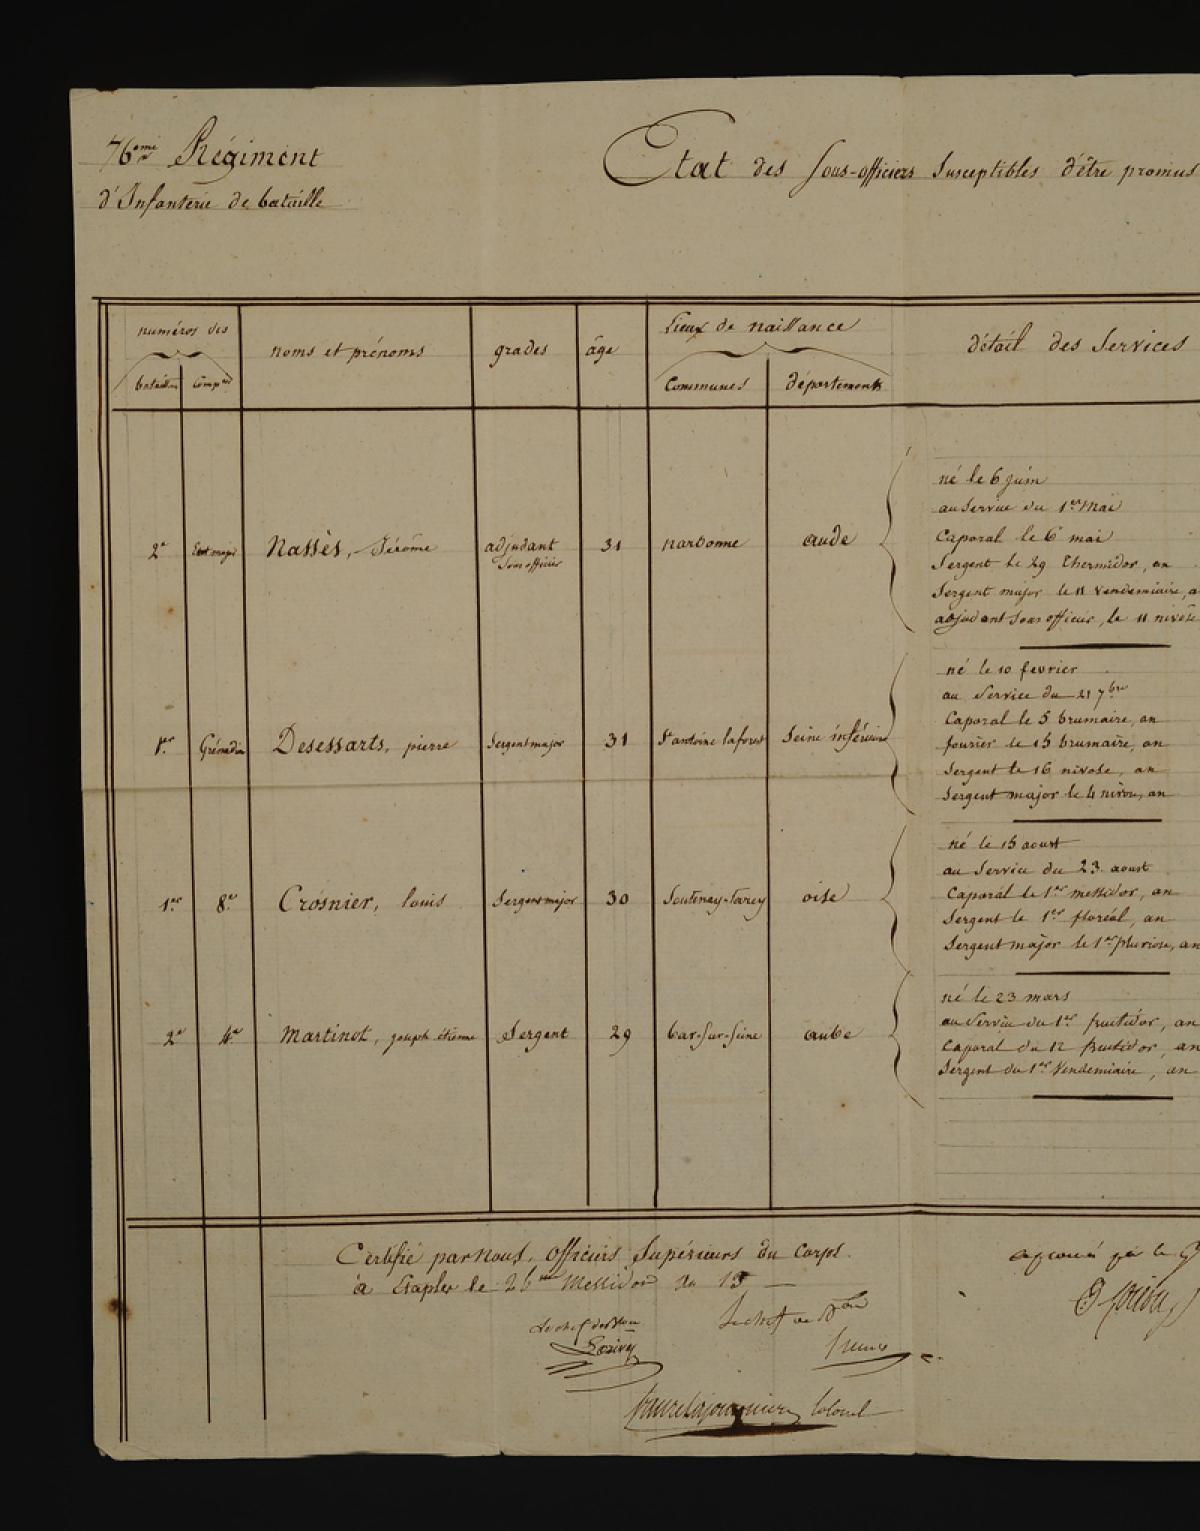 76eme Régiment
d'Infanterie de bataille
Etat des Sous-officiers Susceptibles d'être promus
numéros des
bataillon
Compnies
noms et prénoms
grades
âge
Lieux de naissance
Communes
départements
détail des Services
2e
Etat major
Nassès, Jérôme
adjudant
Sous officier
31
narbonne
aude
né le 6 juin
au Service du 1er Mai
Caporal le 6 mai
Sergent le 29 thermidor, an
Sergent major le 11 Vendemiaire, a
adjudant Sous officier, le 11 nivôse
1er
Grénadier
Desessarts, pierre
Sergent major
31
St antoine laforest
Seine inférieure
né le 10 fevrier
au Service du 21 7bre
Caporal le 5 brumaire, an
fourier le 15 brumaire, an
Sergent le 16 nivose, an
Sergent major le 4 nivose, an
1er
8e
Crosnier, louis
Sergent major
30
oise
né le 15 aoust
au Service du 23 aoust
Caporal le 1er messidor, an
Sergent le 1er floréal, an
Sergent major le 1er pluviose, an
2e
4e
Martinot, joseph étienne
Sergent
29
bar-Sur-Seine
aube
né le 23 mars
au Service du 1er fructidor, an
Caporal du 12 fructidor, an
Sergent du 1er Vendemiaire, an
Certifié par nous, Officiers Supérieurs du Corps.
à Etaples le 26 Messidor an 13
le
Le chef de Bon
Le chef de Bon
Faure Lajonquiere Colonel